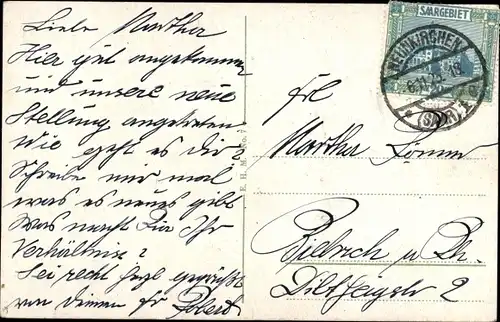 Liebe Martha
Hier gut angekommen
und unsere neue
Stellung angetreten
Wie geht es dir?
Schreibe mir mal
was es neues gibt
Was macht Dir Ihr
Verhältnis?
Sei recht herzl gegrüßt
von Deinem fr Robert
SAARGEBIET
NEUNKIRCHEN
(SAAR)
Frl
Martha
Biebrich a Rh.
2